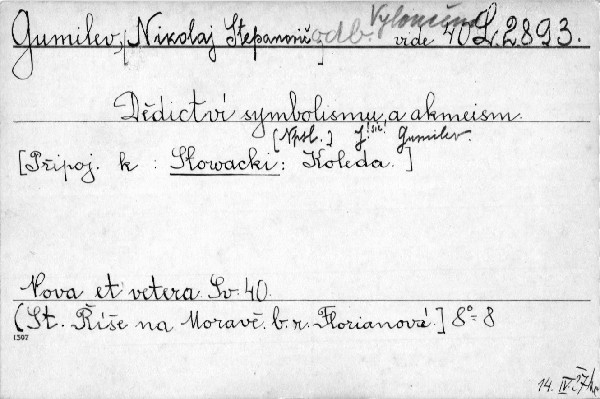 Gumilev, [Nikolaj Stepanovič] odb. Vyloučeno vide 40 L. 2893.
Dědictví symbolismu a akmeism.
[Npsl.] J. !sic! Gumilev.
[Připoj. k : Słowacki: Koleda.]
Nova et vetera. Sv. 40.
(St. Říše na Moravě. b. r. Florianová.] 8° = 8
1397
14. IV. 27